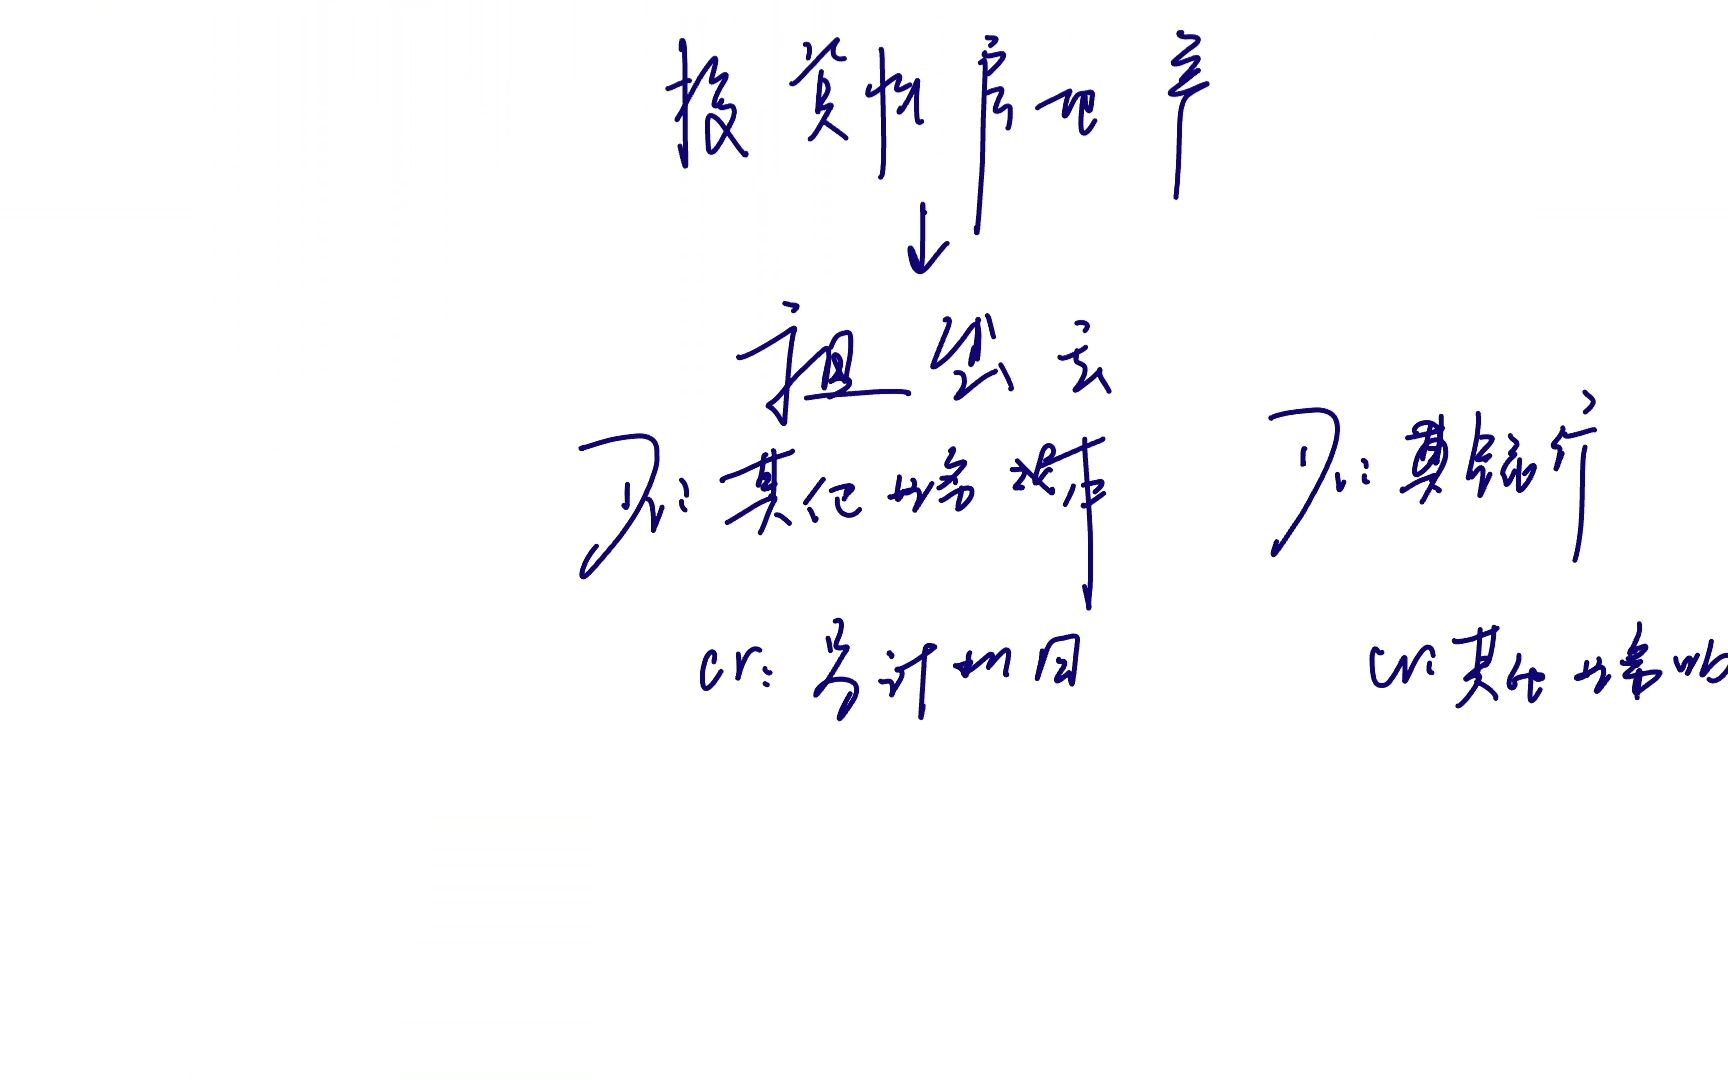 投资性房地产
↓
租出去
Dr: 其他业务成本
Cr: 累计折旧
Dr: 银行
Cr: 其他业务收